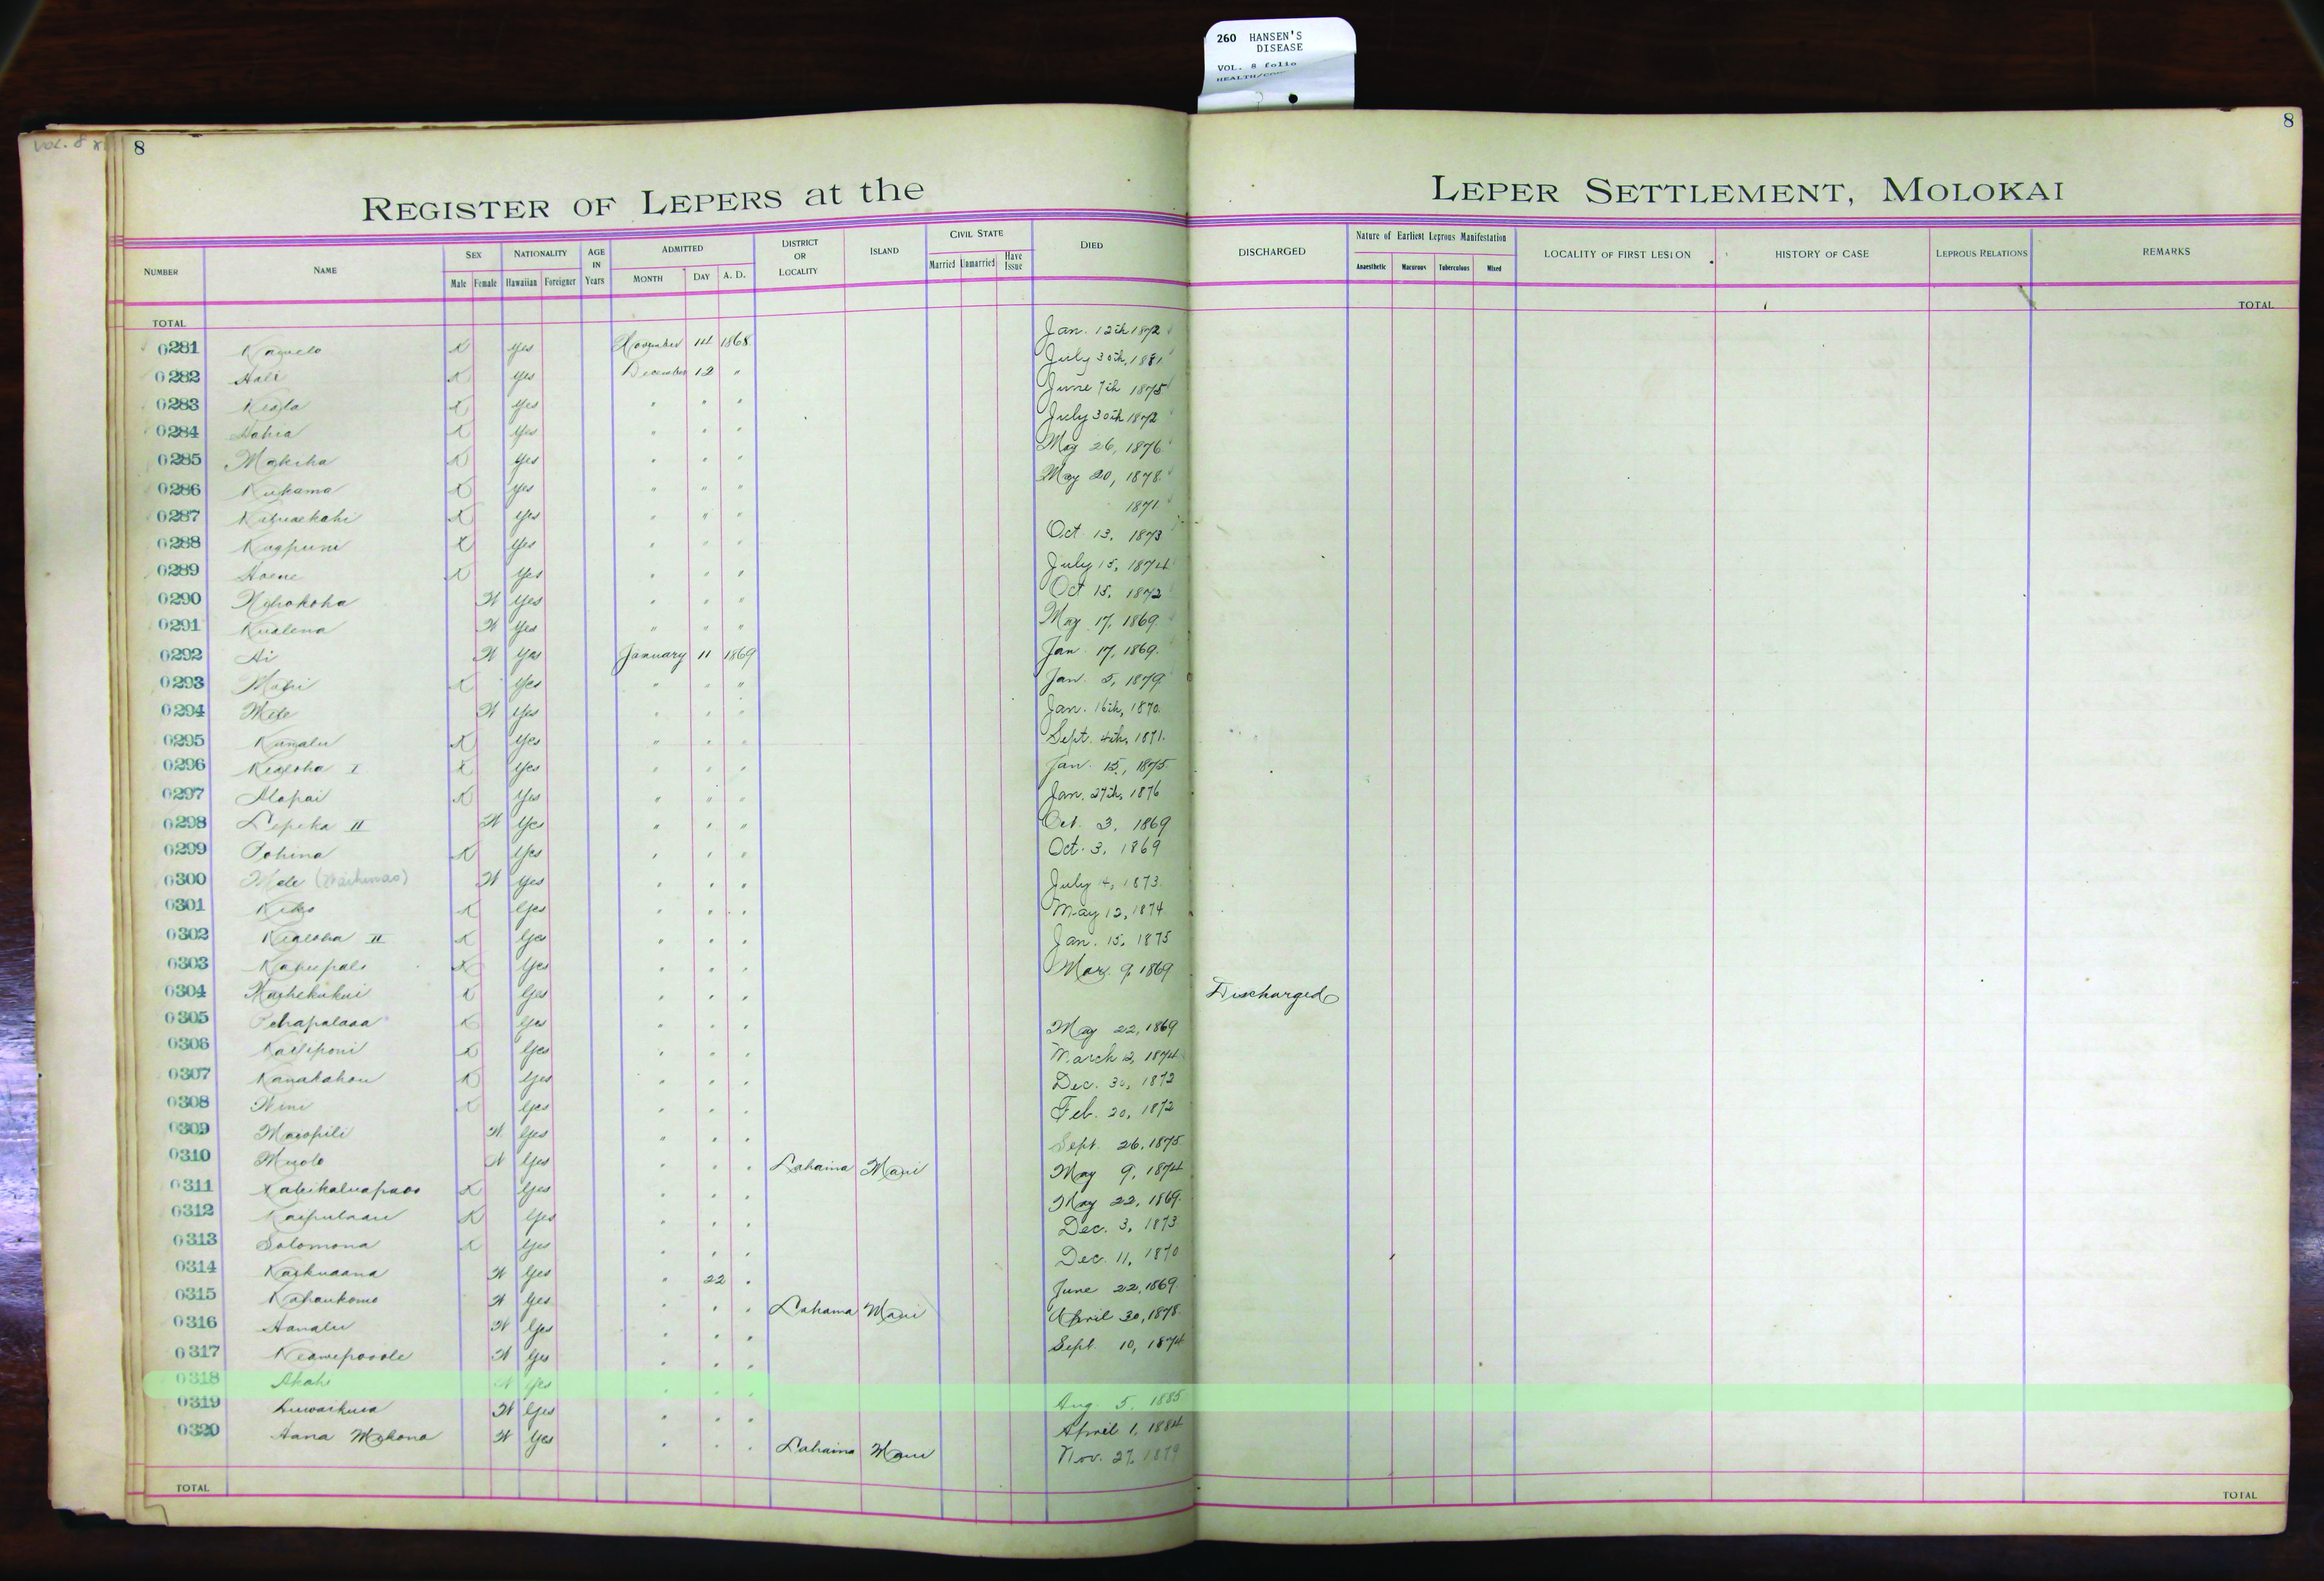 260 HANSEN'S
DISEASE
VOL. 8 folio
VOL. 8
8
8
REGISTER OF LEPERS at the LEPER SETTLEMENT, MOLOKAI
NUMBER NAME SEX NATIONALITY AGE IN Years ADMITTED DISTRICT OR LOCALITY ISLAND CIVIL STATE DIED DISCHARGED Nature of Earliest Leprous Manifestation LOCALITY OF FIRST LESION HISTORY OF CASE LEPROUS RELATIONS REMARKS
Male Female Hawaiian Foreigner MONTH DAY A. D. Married Unmarried Have Issue Anaesthetic Macurous Tuberculous Mixed
TOTAL TOTAL
0281 K Yes November 14 1868 Jan. 12th 1872
0282 Hali K Yes December 12 " July 30th, 1881
0283 Keala K Yes " " " June 7th 1875
0284 K Yes " " " July 30th 1872
0285 Makeha K Yes " " " May 26, 1876
0286 Kukama K Yes " " " May 20, 1878
0287 K Yes " " " 1871
0288 K Yes " " " Oct 13, 1873
0289 Hoene K Yes " " " July 15, 1874
0290 W Yes " " " Oct 15, 1872
0291 Kualena W Yes " " " May 17, 1869
0292 Ai W Yes January 11 1869 Jan 17, 1869
0293 K Yes " " " Jan 5, 1879
0294 Mele W Yes " " " Jan. 16th, 1870
0295 K Yes " " " Sept. 4th, 1871
0296 Kealoha I K Yes " " " Jan. 15, 1875
0297 Alapai K Yes " " " Jan. 27th, 1876
0298 Lepeka II W Yes " " " Oct. 3, 1869
0299 Pohina K Yes " " " Oct. 3, 1869
0300 Mele W Yes " " " July 4, 1873
0301 K Yes " " " May 12, 1874
0302 Kealoha II K Yes " " " Jan. 15, 1875
0303 K Yes " " " Mar. 9, 1869
0304 K Yes " " " Discharged
0305 K Yes " " " May 22, 1869
0306 Kailiponi K Yes " " " March 12, 1874
0307 Kanakahou K Yes " " " Dec. 30, 1872
0308 K Yes " " " Feb. 20, 1872
0309 Maeopili W Yes " " " Sept. 26, 1875
0310 W Yes " " " Lahaina Maui May 9, 1874
0311 K Yes " " " May 22, 1869
0312 K Yes " " " Dec. 3, 1873
0313 Solomona K Yes " " " Dec. 11, 1870
0314 Kaikuaana W Yes " 22 " June 22, 1869
0315 W Yes " " " Lahaina Maui April 30, 1878
0316 Hanalu W Yes " " " Sept. 10, 1874
0317 Keawepooole W Yes " " "
0318 Akahi W Yes " " " Aug. 5, 1885
0319 W Yes " " " April 1, 1884
0320 Hana W Yes " " " Lahaina Maui Nov. 27, 1879
TOTAL TOTAL